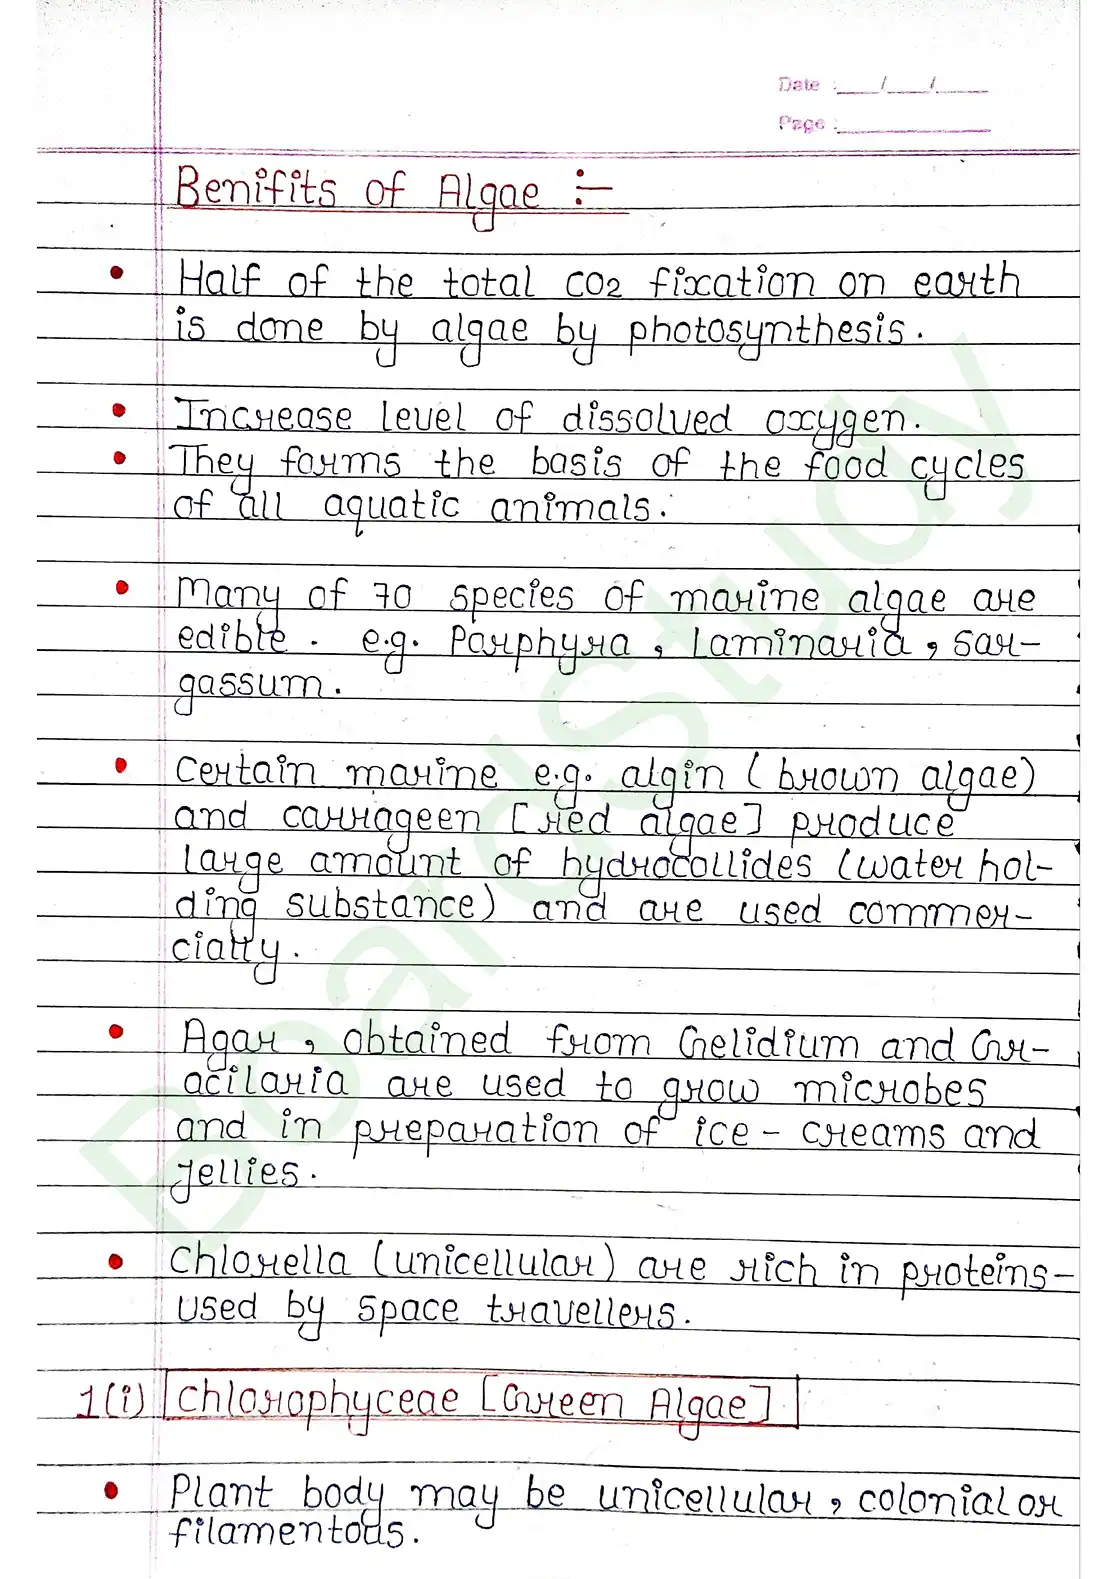 Date :___/___/____
Page :____________
Benifits of Algae :-
• Half of the total CO2 fixation on earth
is done by algae by photosynthesis.
• Increase level of dissolved oxygen.
• They forms the basis of the food cycles
of all aquatic animals.
• Many of 70 species of marine algae are
edible. e.g. Porphyra, Laminaria, Sar-
gassum.
• Certain marine e.g. algin (brown algae)
and carrageen [red algae] produce
large amount of hydrocollides (water hol-
ding substance) and are used commer-
cially.
• Agar, obtained from Gelidium and Gr-
acilaria are used to grow microbes
and in preparation of ice-creams and
jellies.
• Chlorella (unicellular) are rich in proteins-
used by space travellers.
1(i) Chlorophyceae [Green Algae]
• Plant body may be unicellular, colonial or
filamentous.
BoardStudy